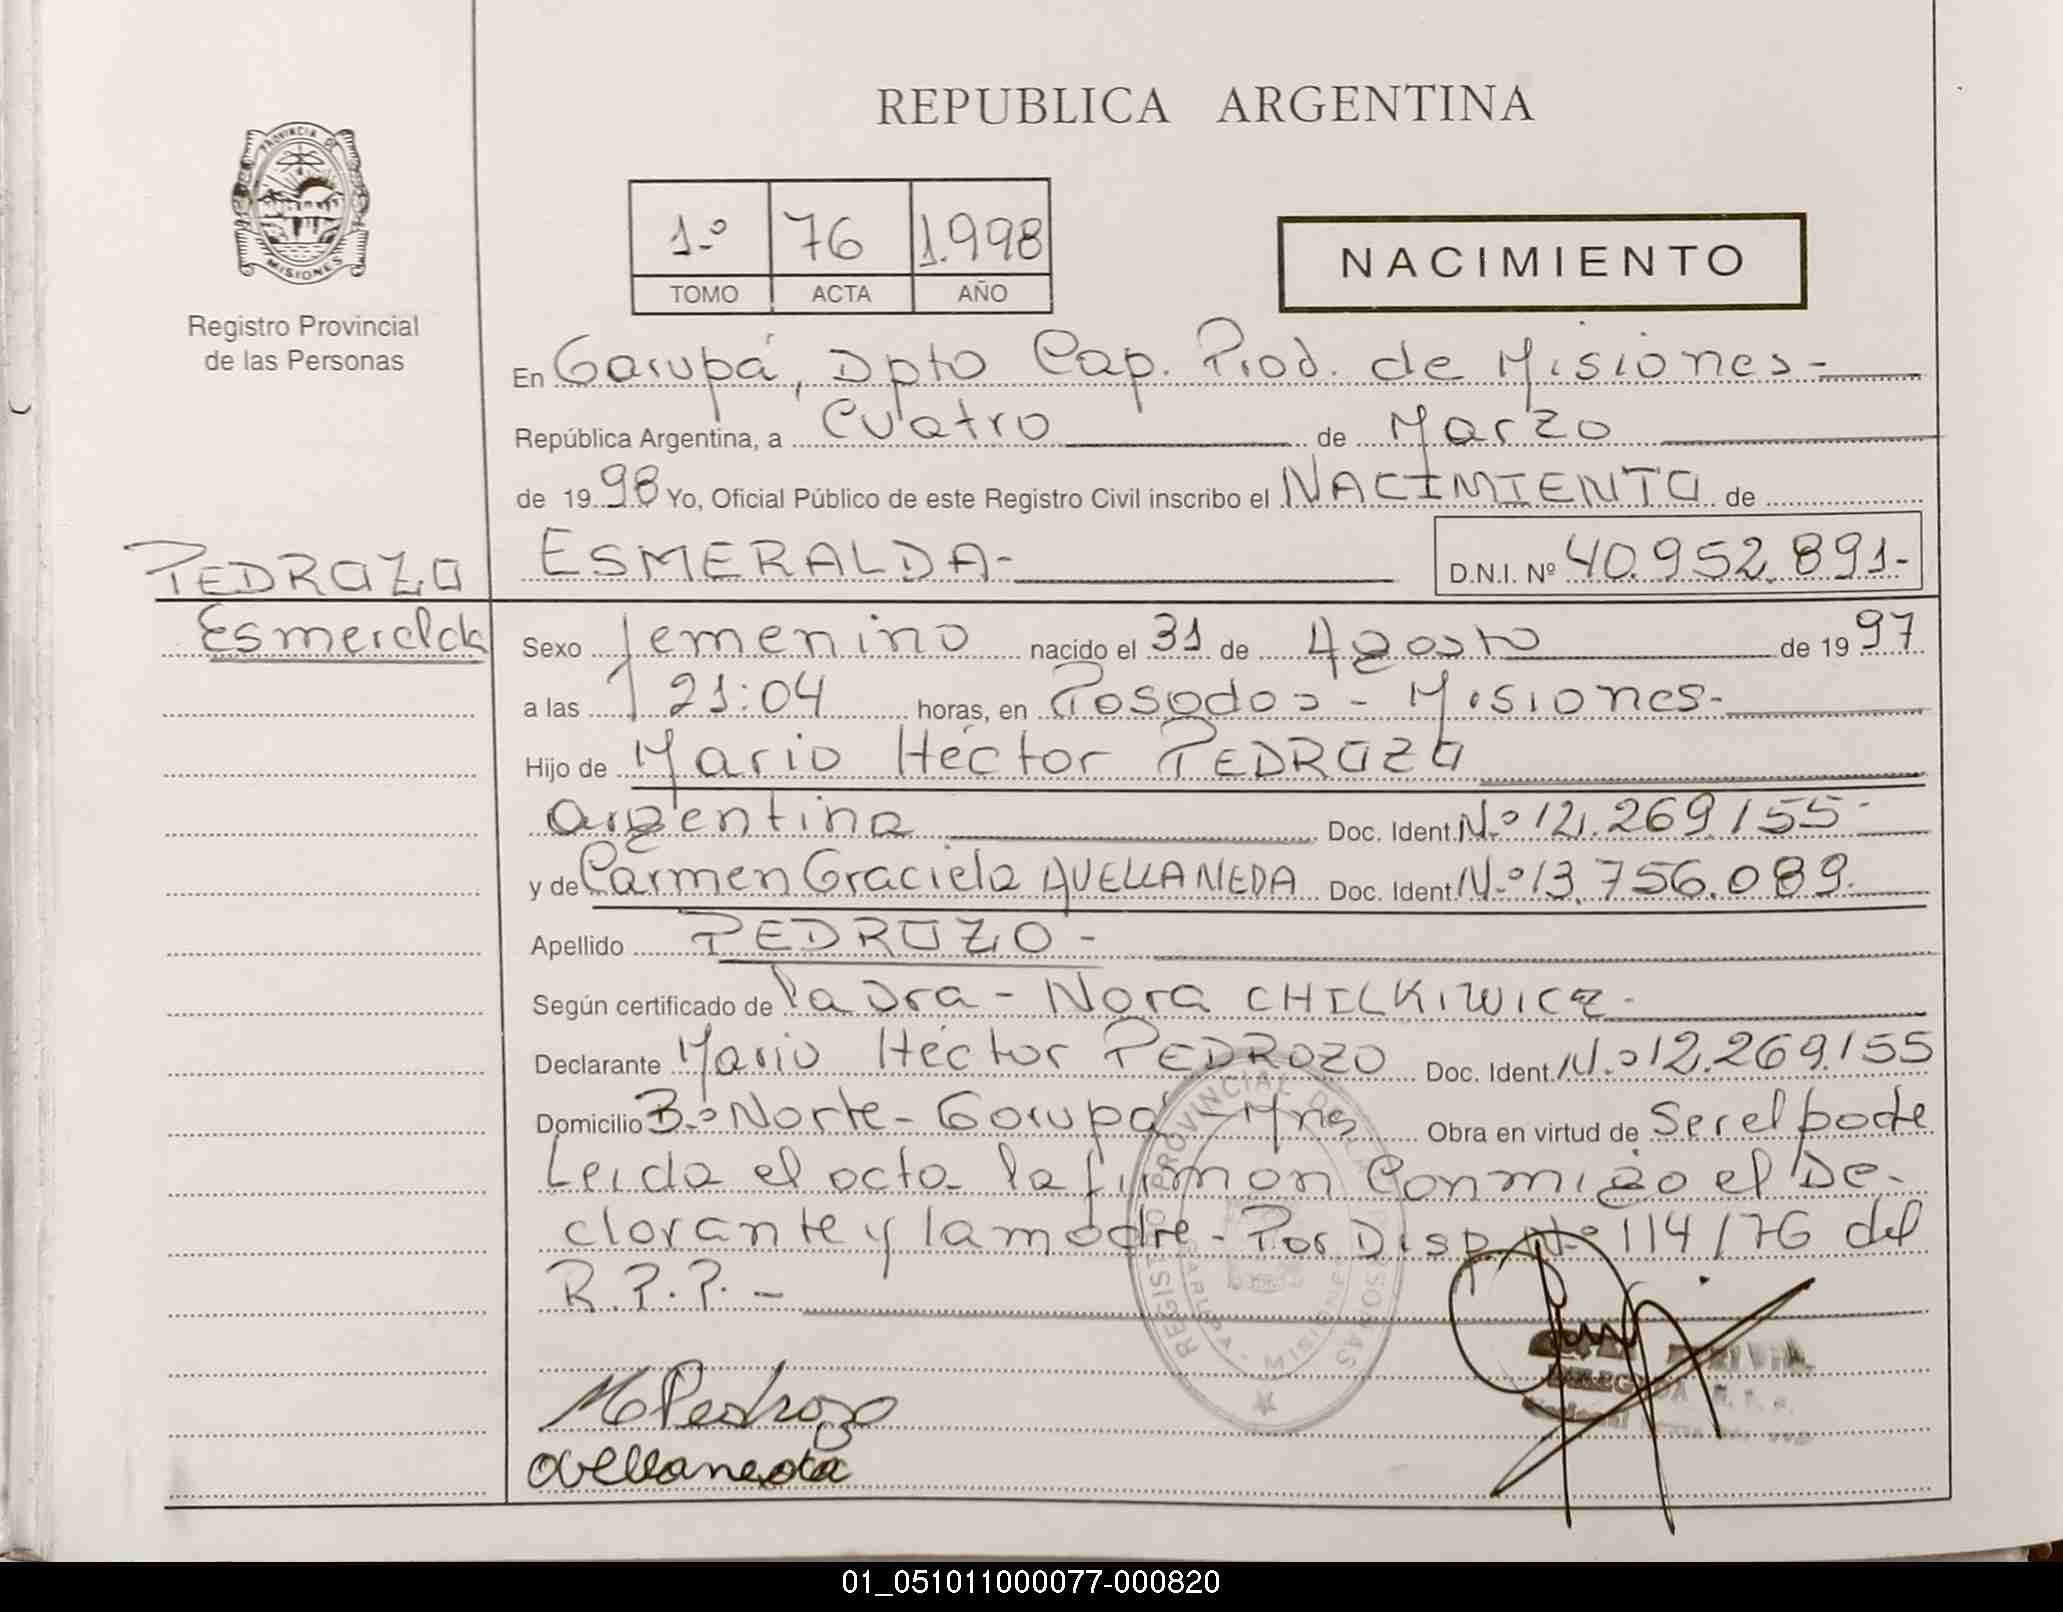 REPUBLICA ARGENTINA
PROVINCIA DE
MISIONES
Registro Provincial
de las Personas
1.º 76 1.998
TOMO ACTA AÑO
NACIMIENTO
En Garupá, Dpto Cap. Prov. de Misiones-
República Argentina, a Cuatro de Marzo
de 1998 Yo, Oficial Público de este Registro Civil inscribo el NACIMIENTO de
PEDROZO
ESMERALDA-
D.N.I. Nº 40.952.891-
Esmeralda
Sexo femenino nacido el 31 de Agosto de 1997
a las 21:04 horas, en Posadas - Misiones-
Hijo de Mario Héctor PEDROZO
argentina Doc. Ident. N.º 12.269.155-
y de Carmen Graciela AVELLANEDA Doc. Ident. N.º 13.756.089.
Apellido PEDROZO-
Según certificado de la Dra - Nora CHILKIWICZ-
Declarante Mario Héctor PEDROZO Doc. Ident. N.º 12.269.155
Domicilio B.º Norte - Garupá - Mnes Obra en virtud de Ser el padre
Leida el acta la firman Conmigo el De-
clarante y la madre - Por Disp. N.º 114/76 del
R.P.P. -
REGISTRO PROVINCIAL DE LAS PERSONAS
MISIONES
M Pedrozo
avellaneda
01_051011000077-000820